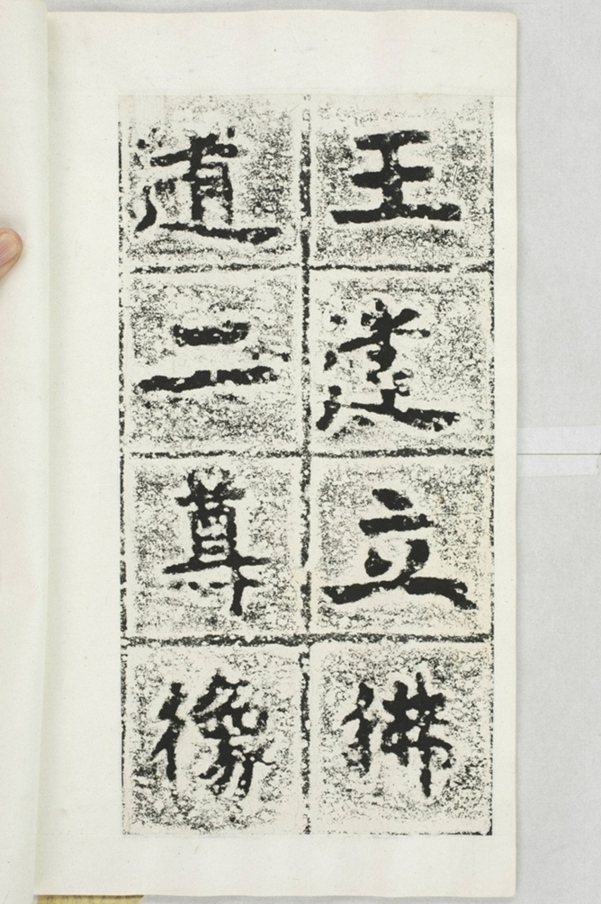 王達立佛
道二尊像